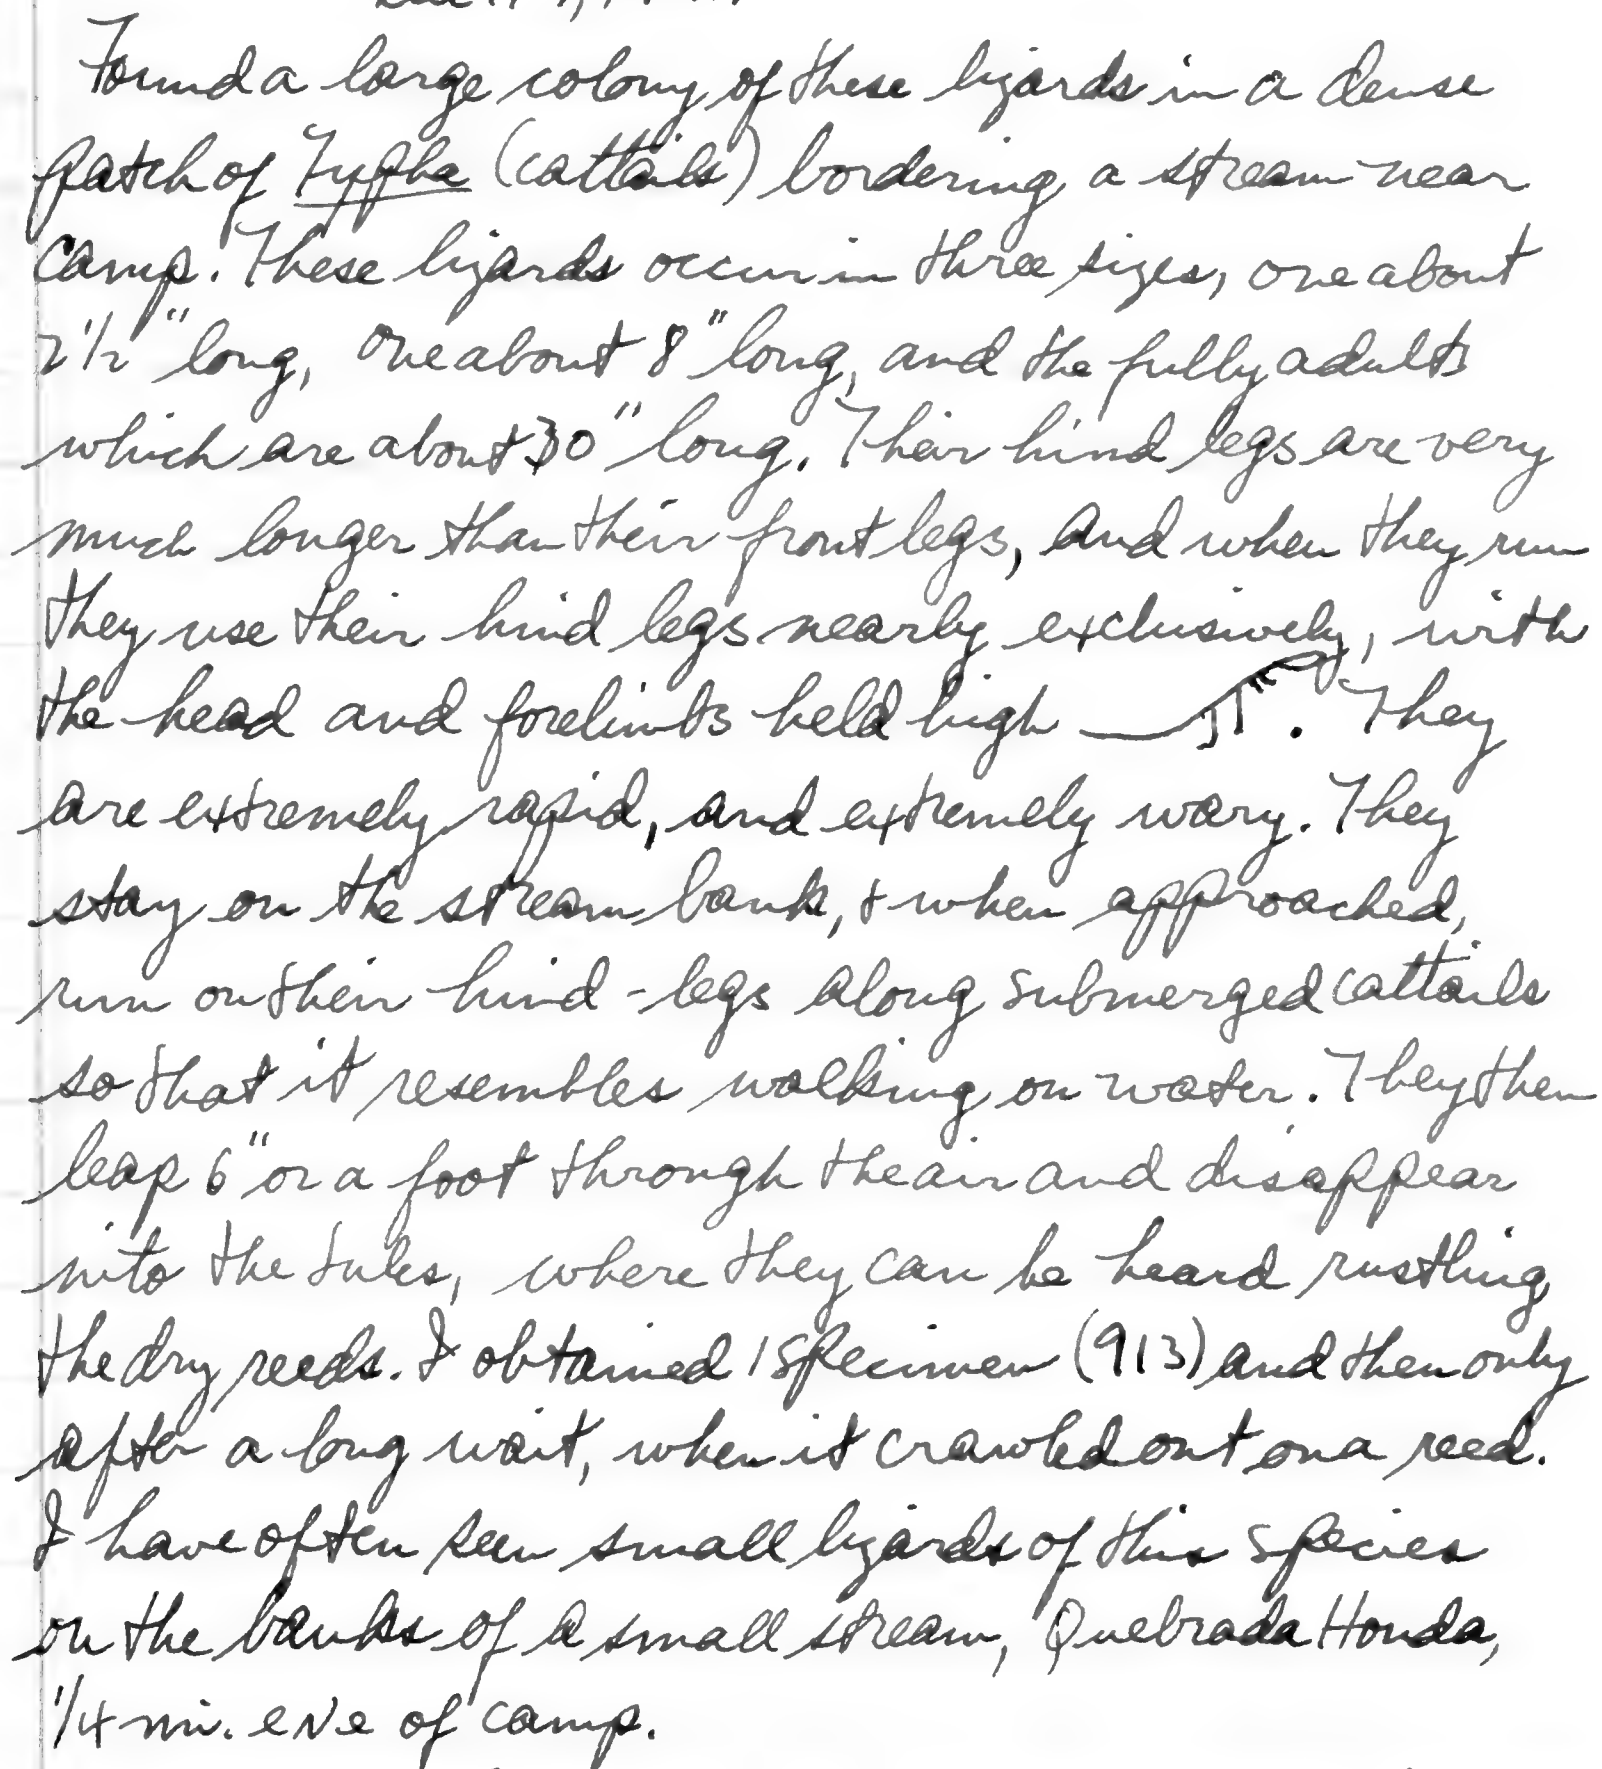 Found a large colony of these lizards in a dense
patch of Typha (cattails) bordering a stream near
camp. These lizards occur in three sizes, one about
2 1/2" long, one about 8" long, and the fully adults
which are about 30" long. Their hind legs are very
much longer than their front legs, and when they run
they use their hind legs nearly exclusively, with
the head and forelimbs held high . They
are extremely rapid, and extremely wary. They
stay on the stream bank, & when approached,
run on their hind-legs along submerged cattails
so that it resembles walking on water. They then
leap 6" or a foot through the air and disappear
into the tules, where they can be heard rustling
the dry reeds. I obtained 1 specimen (913) and then only
after a long wait, when it crawled out on a reed.
I have often seen small lizards of this species
on the banks of a small stream, Quebrada Honda,
1/4 mi. ENE of camp.